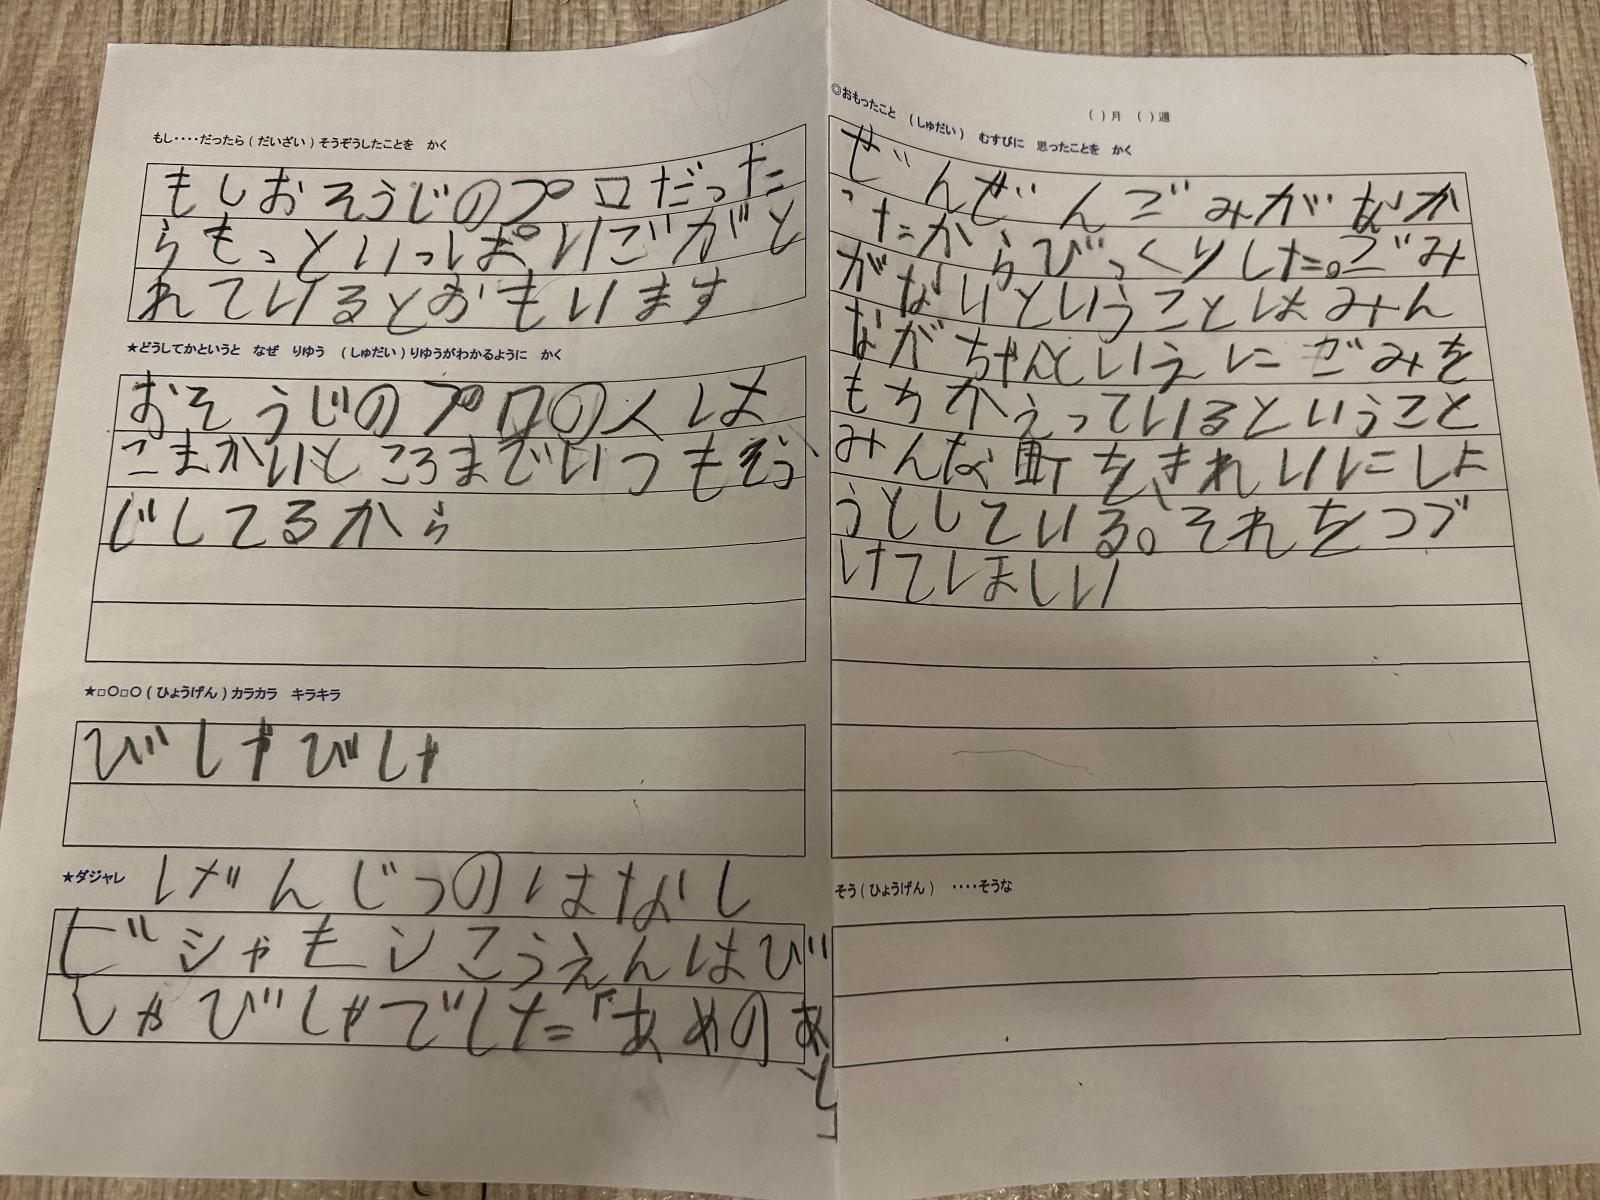 もし････だったら(だいざい)そうぞうしたことを　かく
もしおそうじのプロだった
らもっといっぱいごがと
れているとおもいます
★どうしてかというと　なぜ　りゆう　(しゅだい)りゆうがわかるように　かく
おそうじのプロの人は
こまかいところまでいつもそう
じしてるから
★□○□○(ひょうげん)カラカラ　キラキラ
びしゃびしゃ
★ダジャレ
げんじつのはなし
ビシャモンこうえんはび
しゃびしゃでした「あめのあ
と」
( )月　( )週
◎おもったこと　(しゅだい)　むすびに　思ったことを　かく
ぜんぜんごみがなか
ったからびっくりした。ごみ
がないということはみん
ながちゃんといえにごみを
もちかえっているということ
みんな町をきれいにしよ
うとしている。それをつづ
けてほしい
そう(ひょうげん)　････そうな